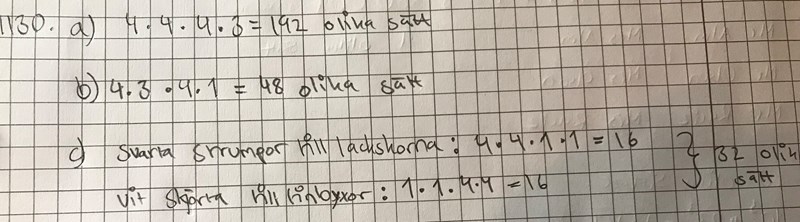 1130. a) 4·4·4·3=192 olika sätt
b) 4·3·4·1=48 olika sätt
c) Svarta strumpor till lackskorna: 4·4·1·1=16 } 32 olik
vit skjorta till linbyxor: 1·1·4·4=16 sätt